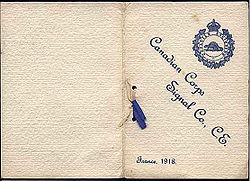 Canadian Corps
Signal Co., C.E.
France, 1918.